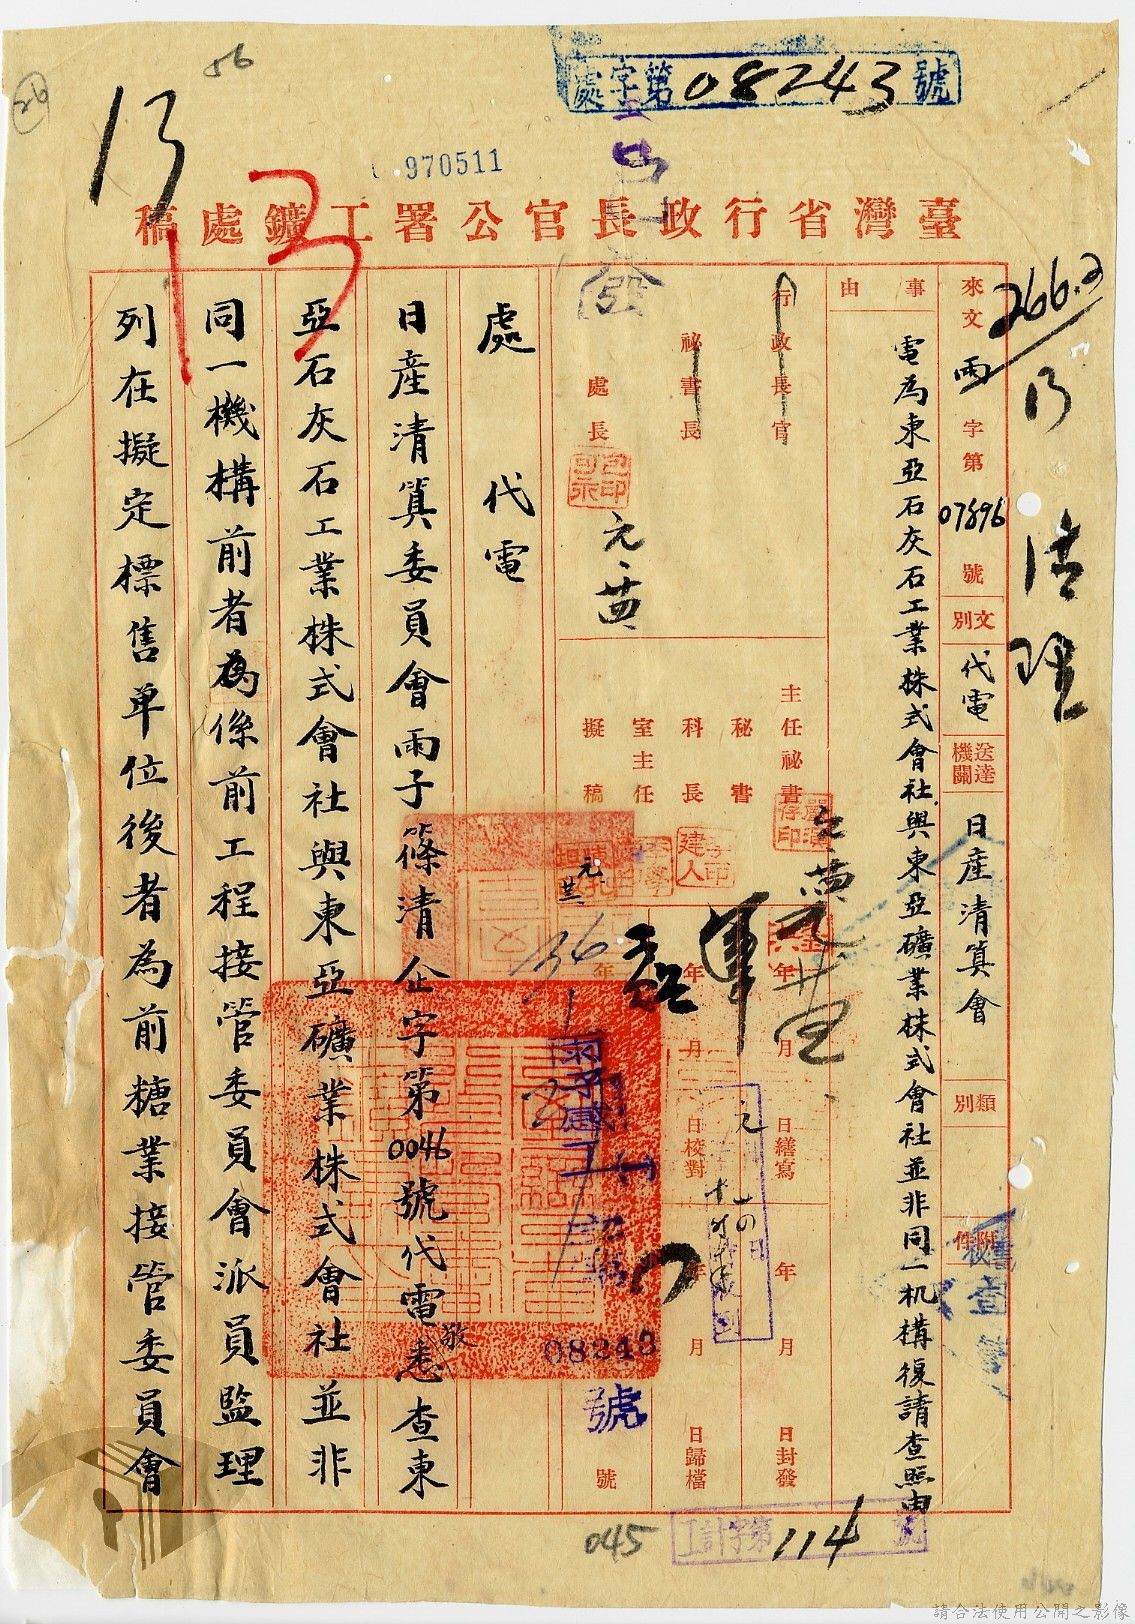 處字第08243號
56
26
13
970511
發
臺灣省行政長官公署工鑛處稿
13
266.2/13
清理
來文 雨字第07596號
文別 代電
送達機關 日產清算會
類別
附件
事由
電為東亞石灰石工業株式會社與東亞礦業株式會社並非同一机構復請查照由
行政長官
祕書長
處長
元、廿
主任祕書
秘書
科長
室主任
擬稿
年 月 日繕寫
年 月 日校對
年 月 日封發
年 月 日歸檔
元廿
36
08243
號
號
處 代電
日產清算委員會雨子篠清企字第0046號代電敬悉查東
亞石灰石工業株式會社與東亞礦業株式會社並非
同一機構前者為係前工程接管委員會派員監理
列在擬定標售單位後者為前糖業接管委員會
045
工計字第114號
請合法使用公開之影像